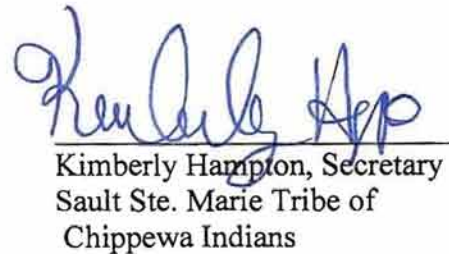 Kimberly Hampton, Secretary
Sault Ste. Marie Tribe of
Chippewa Indians